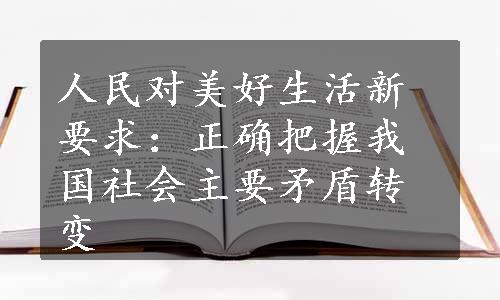 人民对美好生活新
要求：正确把握我
国社会主要矛盾转
变